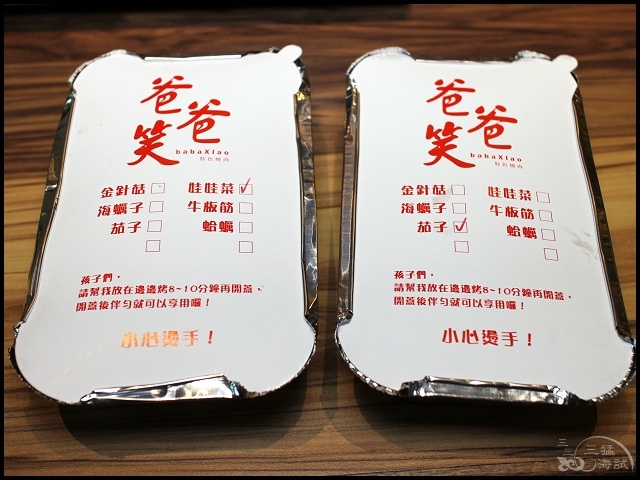 爸爸笑
babaXIao
特色燒肉
金針菇 娃娃菜 ✓
海蠣子 牛板筋
茄子 蛤蠣
孩子們，
請幫我放在邊邊烤8~10分鐘再開蓋、
開蓋後伴勻就可以享用囉！
小心燙手！
爸爸笑
babaXIao
特色燒肉
金針菇 娃娃菜
海蠣子 牛板筋
茄子 ✓ 蛤蠣
孩子們，
請幫我放在邊邊烤8~10分鐘再開蓋，
開蓋後伴勻就可以享用囉！
小心燙手！
三猛
海試